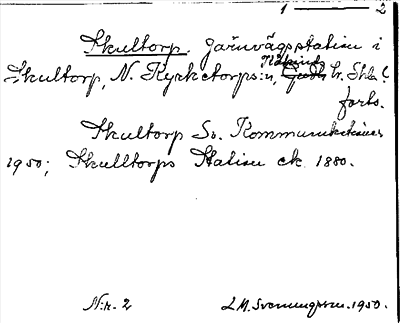 1 — 2
Skultorp. Järnvägsstation i
Skultorp, N. Kyrketorps:n,
forts.
Skultorp Sv. Kommunikationer
1950; Skultorps Station ek. 1880.
N:r. 2 L.M. Svenungsson. 1950.